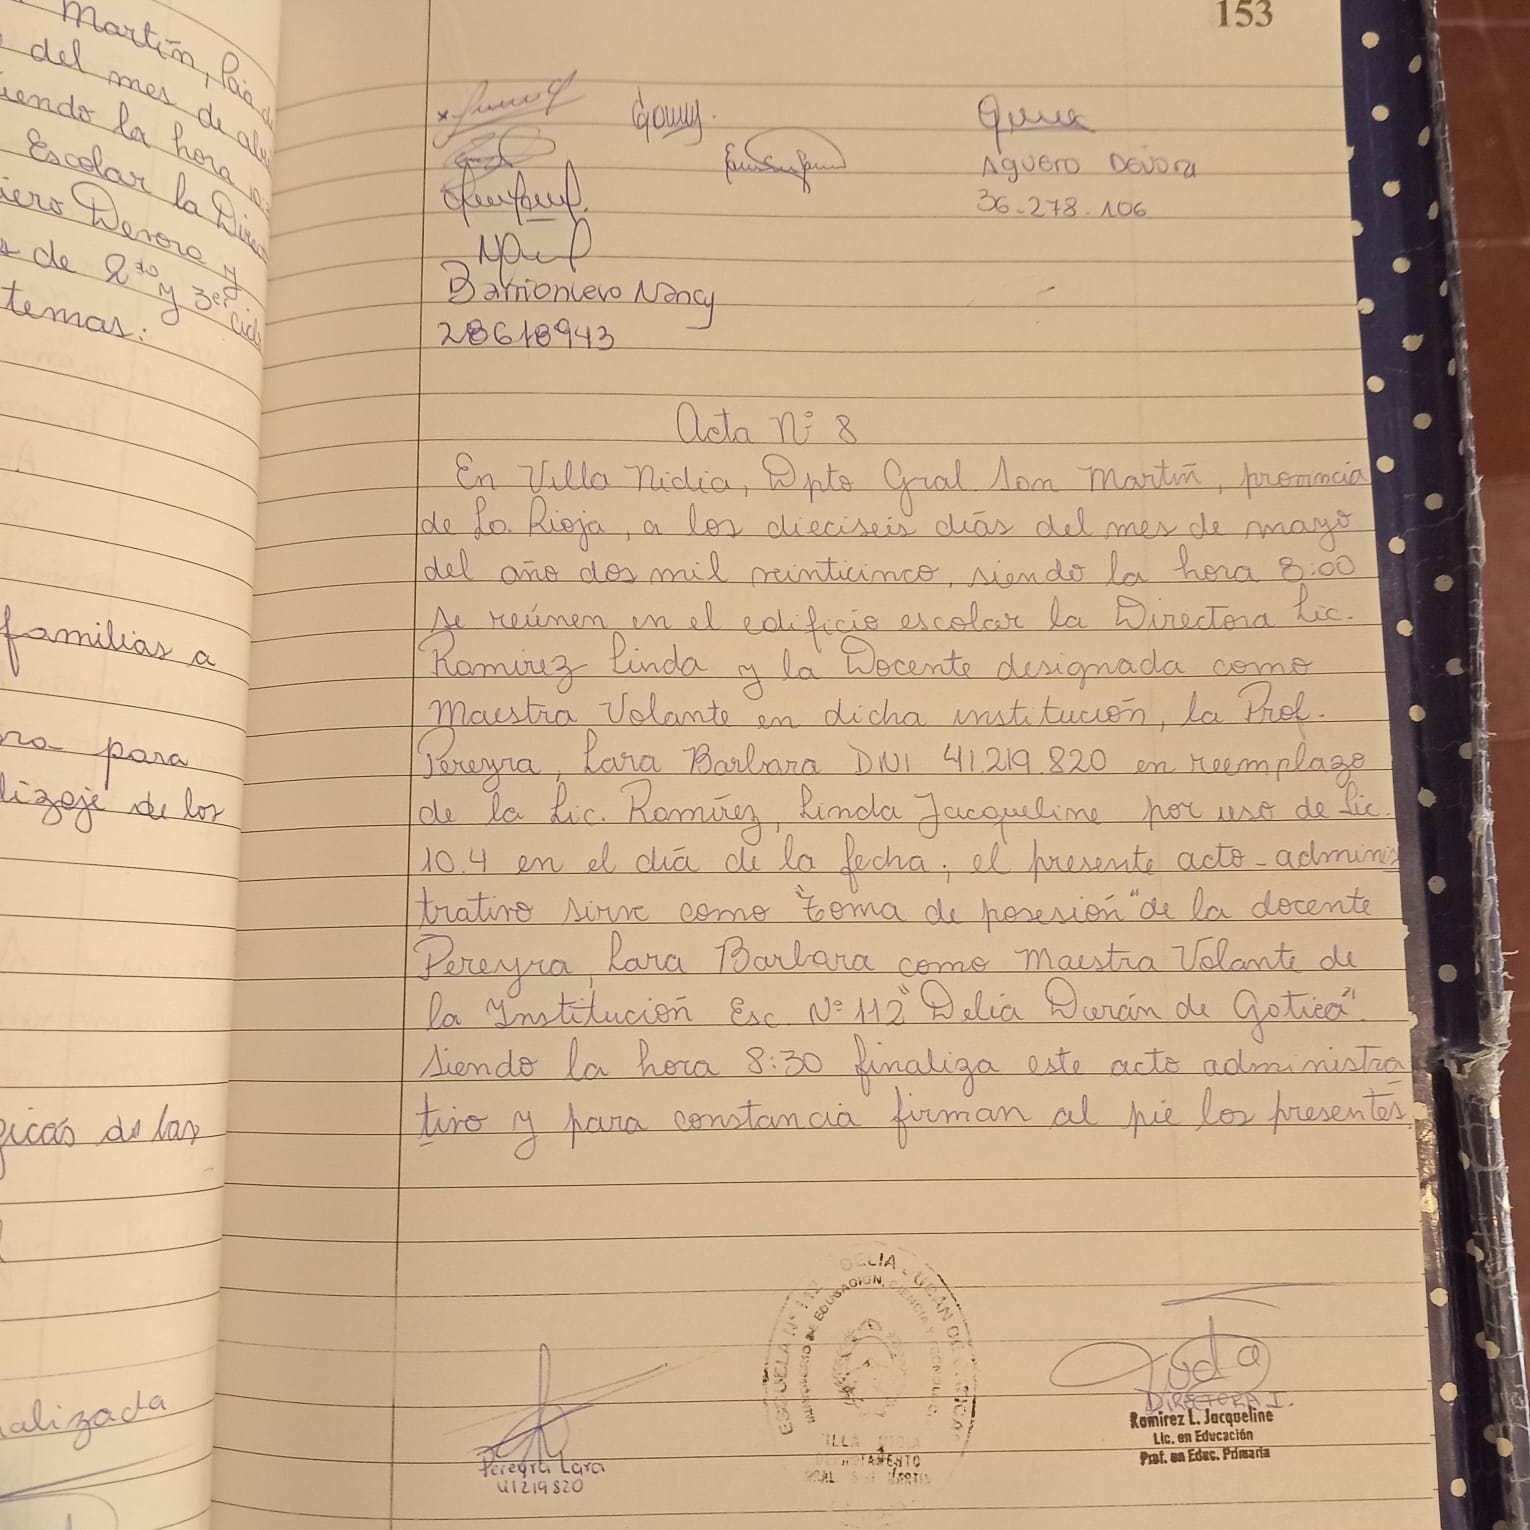 Martín,
del mes de
iendo la hora
Escolar la Direc
iero Devora y
s de 2do y 3er ciclo
temas:
familias a
para
lizaje de los
gicas de las
alizada
153
Aguero Devora
36.278.106
Barrionuevo Nancy
28618943
Acta N° 8
En Villa Nidia, Dpto Gral San Martín, provincia
de La Rioja, a los dieciseis días del mes de mayo
del año dos mil veinticinco, siendo la hora 8:00
se reúnen en el edificio escolar la Directora Lic.
Ramirez Linda y la Docente designada como
Maestra Volante en dicha institución, la Prof.
Pereyra, Lara Barbara DNI 41.219.820 en reemplazo
de la Lic. Ramírez, Linda Jacqueline por uso de Lic.
10.4 en el día de la fecha; el presente acto-adminis
trativo sirve como "toma de posesión" de la docente
Pereyra, Lara Barbara como Maestra Volante de
la Institución Esc. N° 112 "Delia Durán de Gotica".
Siendo la hora 8:30 finaliza este acto administra
tivo y para constancia firman al pie los presentes.
Pereyra Lara
41219820
ESCUELA N° 112 DELIA DURAN DE GOTICA
MINISTERIO DE EDUCACION, CIENCIA Y TECNOLOG
VILLA NIDIA
DEPARTAMENTO
GRAL SAN MARTIN
DIRECTORA I.
Ramirez L. Jacqueline
Lic. en Educación
Prof. en Educ. Primaria